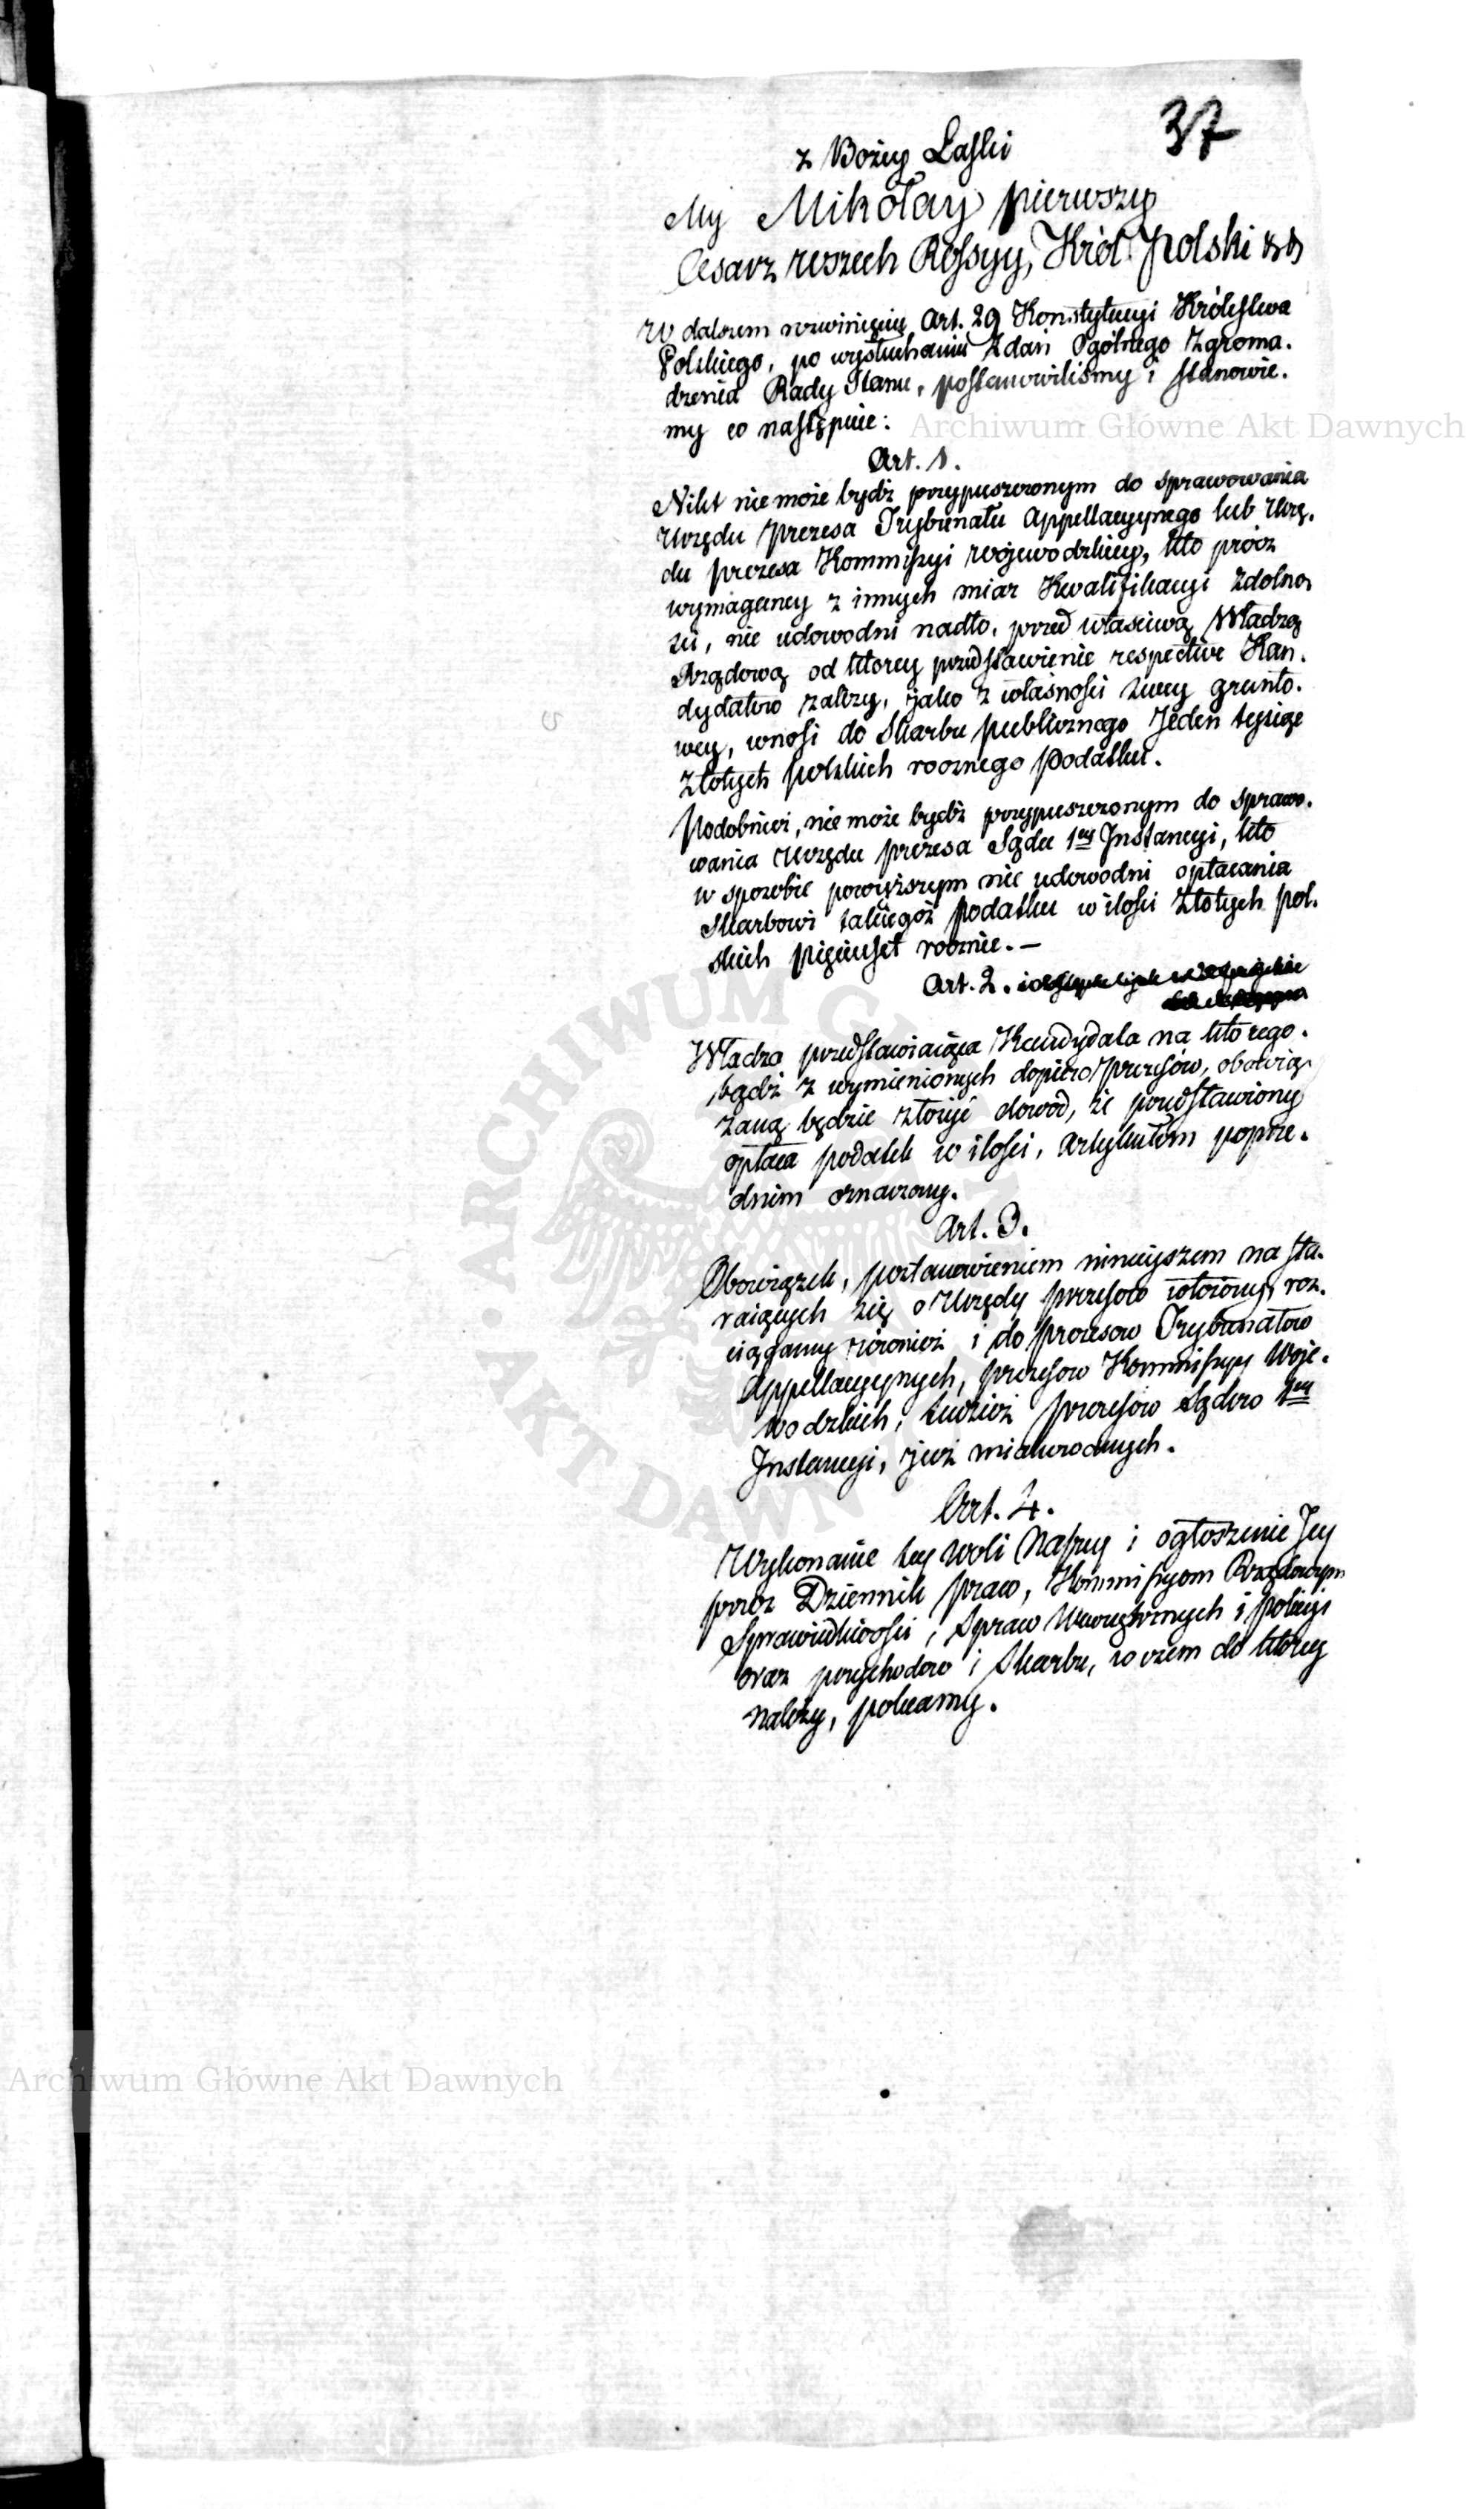 37
z Bożey Łaski
My Mikołay pierwszy
Cesarz wszech Rossyy, Król Polski &&
W dalszem rozwinięciu Art. 29 Konstytucyi Królestwa
Polskiego, po wysłuchaniu Zdań Ogólnego Zgroma-
dzenia Rady Stanu, postanowiliśmy i stanowie-
my co następuie:
Art. 1.
Nikt nie może bydź przypuszczonym do sprawowania
Urzędu Prezesa Trybunału Appellacyynego lub Urzę-
du prezesa Kommissyi Wojewodzkiey, kto prócz
wymaganey z innych miar Kwalifikacyi zdolno-
ści, nie udowodni nadto, przed właściwą Władzą
Rządową od ktorey przedstawienie respective Kan-
dydatow zależy, jako z własności swey grunto-
wey, wnosi do Skarbu publicznego Jeden tysiąc
Złotych polskich rocznego podatku.
Podobnież, nie może bydź przypuszczonym do sprawo-
wania Urzędu prezesa Sądu 1ey Instancyi, kto
w sposobie powyższym nie udowodni opłacania
Skarbowi takiegoż podatku w ilości Złotych pol-
skich pięciuset rocznie. —
Art. 2.
Władza przedstawiaiąca Kandydata na ktorego-
bądź z wymienionych dopiero prezesów, obowią-
zaną będzie złożyć dowód, że przedstawiony
opłaca podatek w ilości, artykułem poprze-
dnim oznaczoney.
Art. 3.
Obowiązek, postanowieniem ninieyszem na sta-
raiących się o Urzędy prezesow włożony, roz-
ciągamy również i do prezesow Trybunałow
Appellacyynych, prezesow Kommissyy Woje-
wodzkich, tudzież prezesów Sądow 1ey
Instancyi, już mianowanych.
Art. 4.
Wykonanie tey Woli Naszey i ogłoszenie Jey
przez Dziennik praw, Kommissyom Rządowym
Sprawiedliwości, Spraw Wewnętrznych i policyi
oraz przychodow i Skarbu, w czem do ktorey
należy, polecamy.
Archiwum Główne Akt Dawnych
ARCHIWUM
AKT DAWN
Archiwum Główne Akt Dawnych